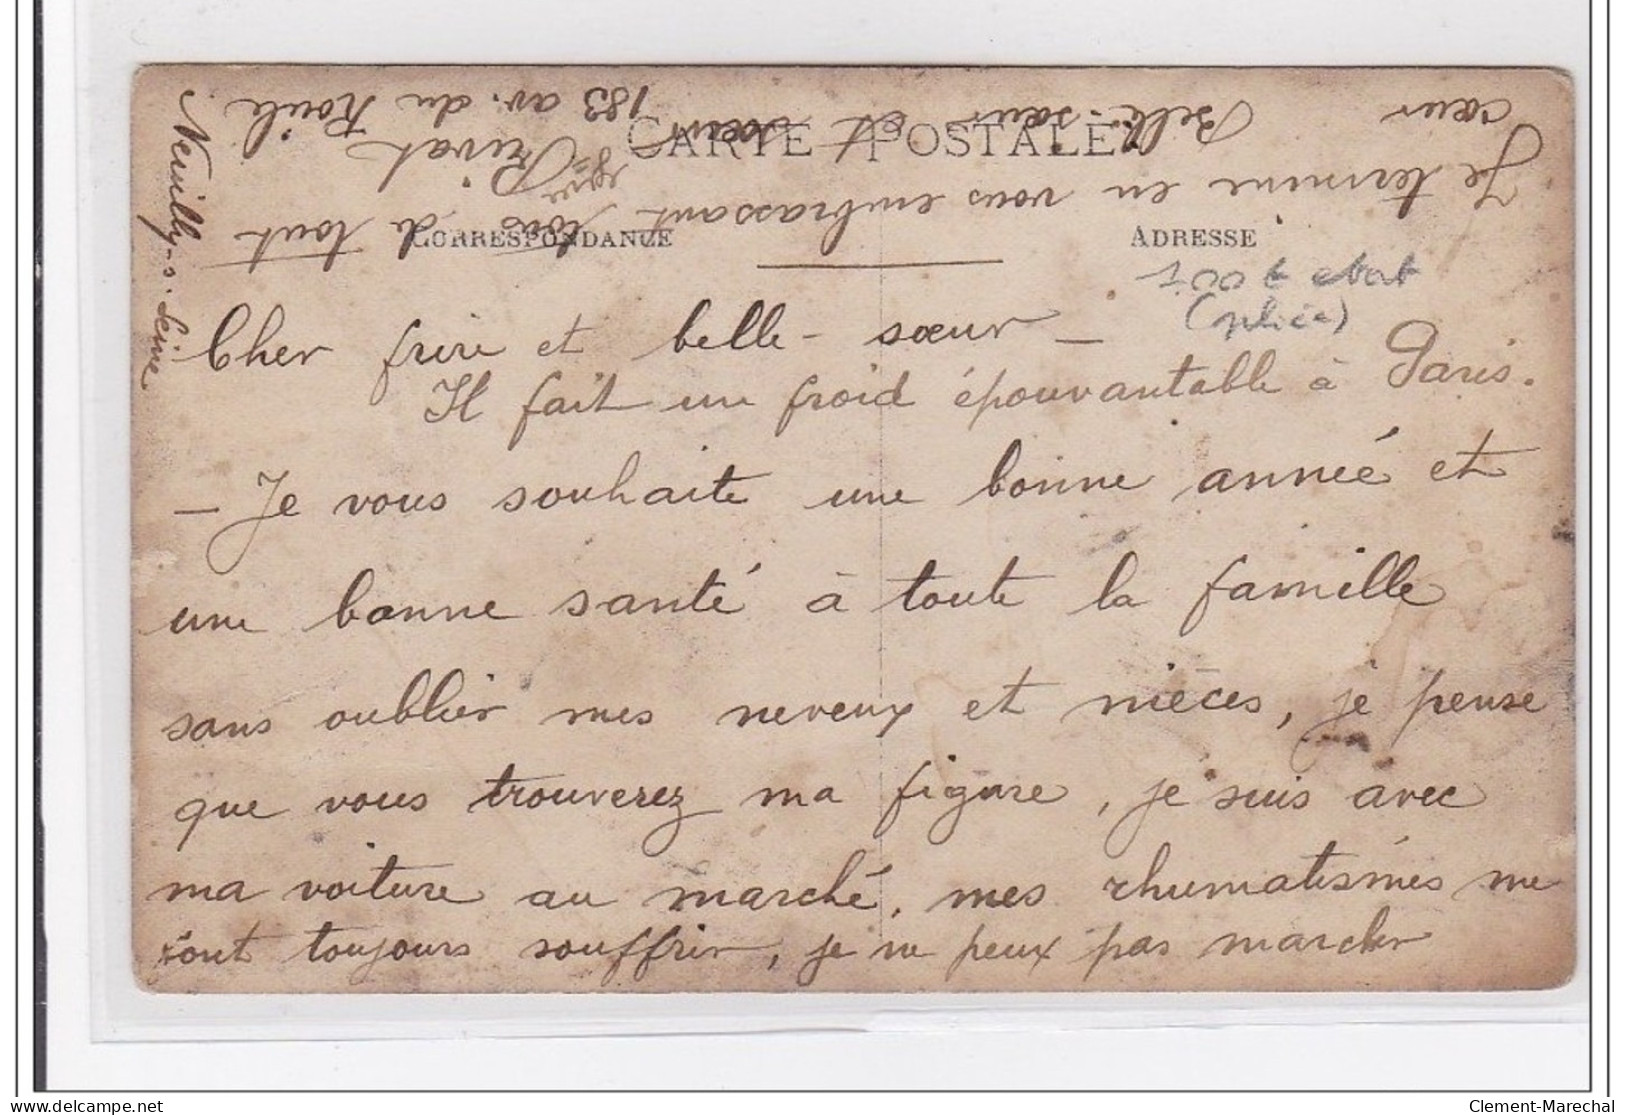 CARTE POSTALE
CORRESPONDANCE
ADRESSE
(pliée)
Cher frère et belle-sœur –
Il fait un froid épouvantable à Paris.
– Je vous souhaite une bonne année et
une bonne santé à toute la famille
sans oublier mes neveux et nièces, je pense
que vous trouverez ma figure, je suis avec
ma voiture au marché, mes rhumatismes me
font toujours souffrir, je ne peux pas marcher
Je termine en vous embrassant tous de tout
cœur Belle-sœur et sœur
Privat
183 av. du Roule
Neuilly-s-Seine
Clement-Marechal